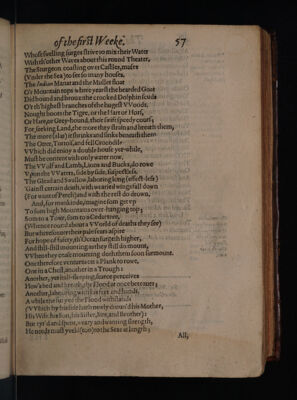 of the first Weeke. 57
Whose swelling surges strive to mix their Water
With th'other Waves above this round Theater,
The Sturgeon coasting over Castles, muses
(Under the Sea) to see so many houses.
The Indian Manat and the Mullet float
O'r Mountain tops where yearst the bearded Goat
Did bound and brouz: the crooked Dolphin scuds
O'r th'highest branches of the hugest VVoods.
Nought boots the Tigre, or the Hart or Hors,
Or Hare, or Grey-hound, their swift speedy cours,
For seeking Land, the more they strain and breath them,
The more (alas) it shrinks and sinks beneath them.
The Otter, Tortois, and fell Crocodile
VVhich did enjoy a double house yer-while,
Must be content with only water now.
The VVolf and Lamb, Lions and Bucks, do rowe
Upon the VVaters, side by side, suspectless.
The Glead and Swallow, labouring long (effect-less)
'Gainst certain death, with wearied wings fall down
(For want of Perch) and with the rest do drown.
And, for mankinde, imagine som get up
To som high Mountains over-hanging top;
Som to a Tour, som to a Cedar tree,
(Whence round about a VVorld of deaths they see)
But wheresoever their pale fears aspire
For hope of safety, th'Ocean surgeth higher,
And still-still mounting as they still do mount,
VVhen they cease mounting doth them soon surmount.
One therefore ventures on a Plank to rowe,
One in a Chest, another in a Trough:
Another, yet half-sleeping, scarce perceives
How's bed and breath, the Flood at once bereaves;
Another, labouring with his feet and hands,
A while the fury of the Flood withstands
(VVhich by his side hath newly drown'd his Mother,
His Wife, his son, his sister, Sire, and Brother):
But tyr'd and spent, weary and wanting strength,
He needs must yeeld (too) to the Seas at length;
All,